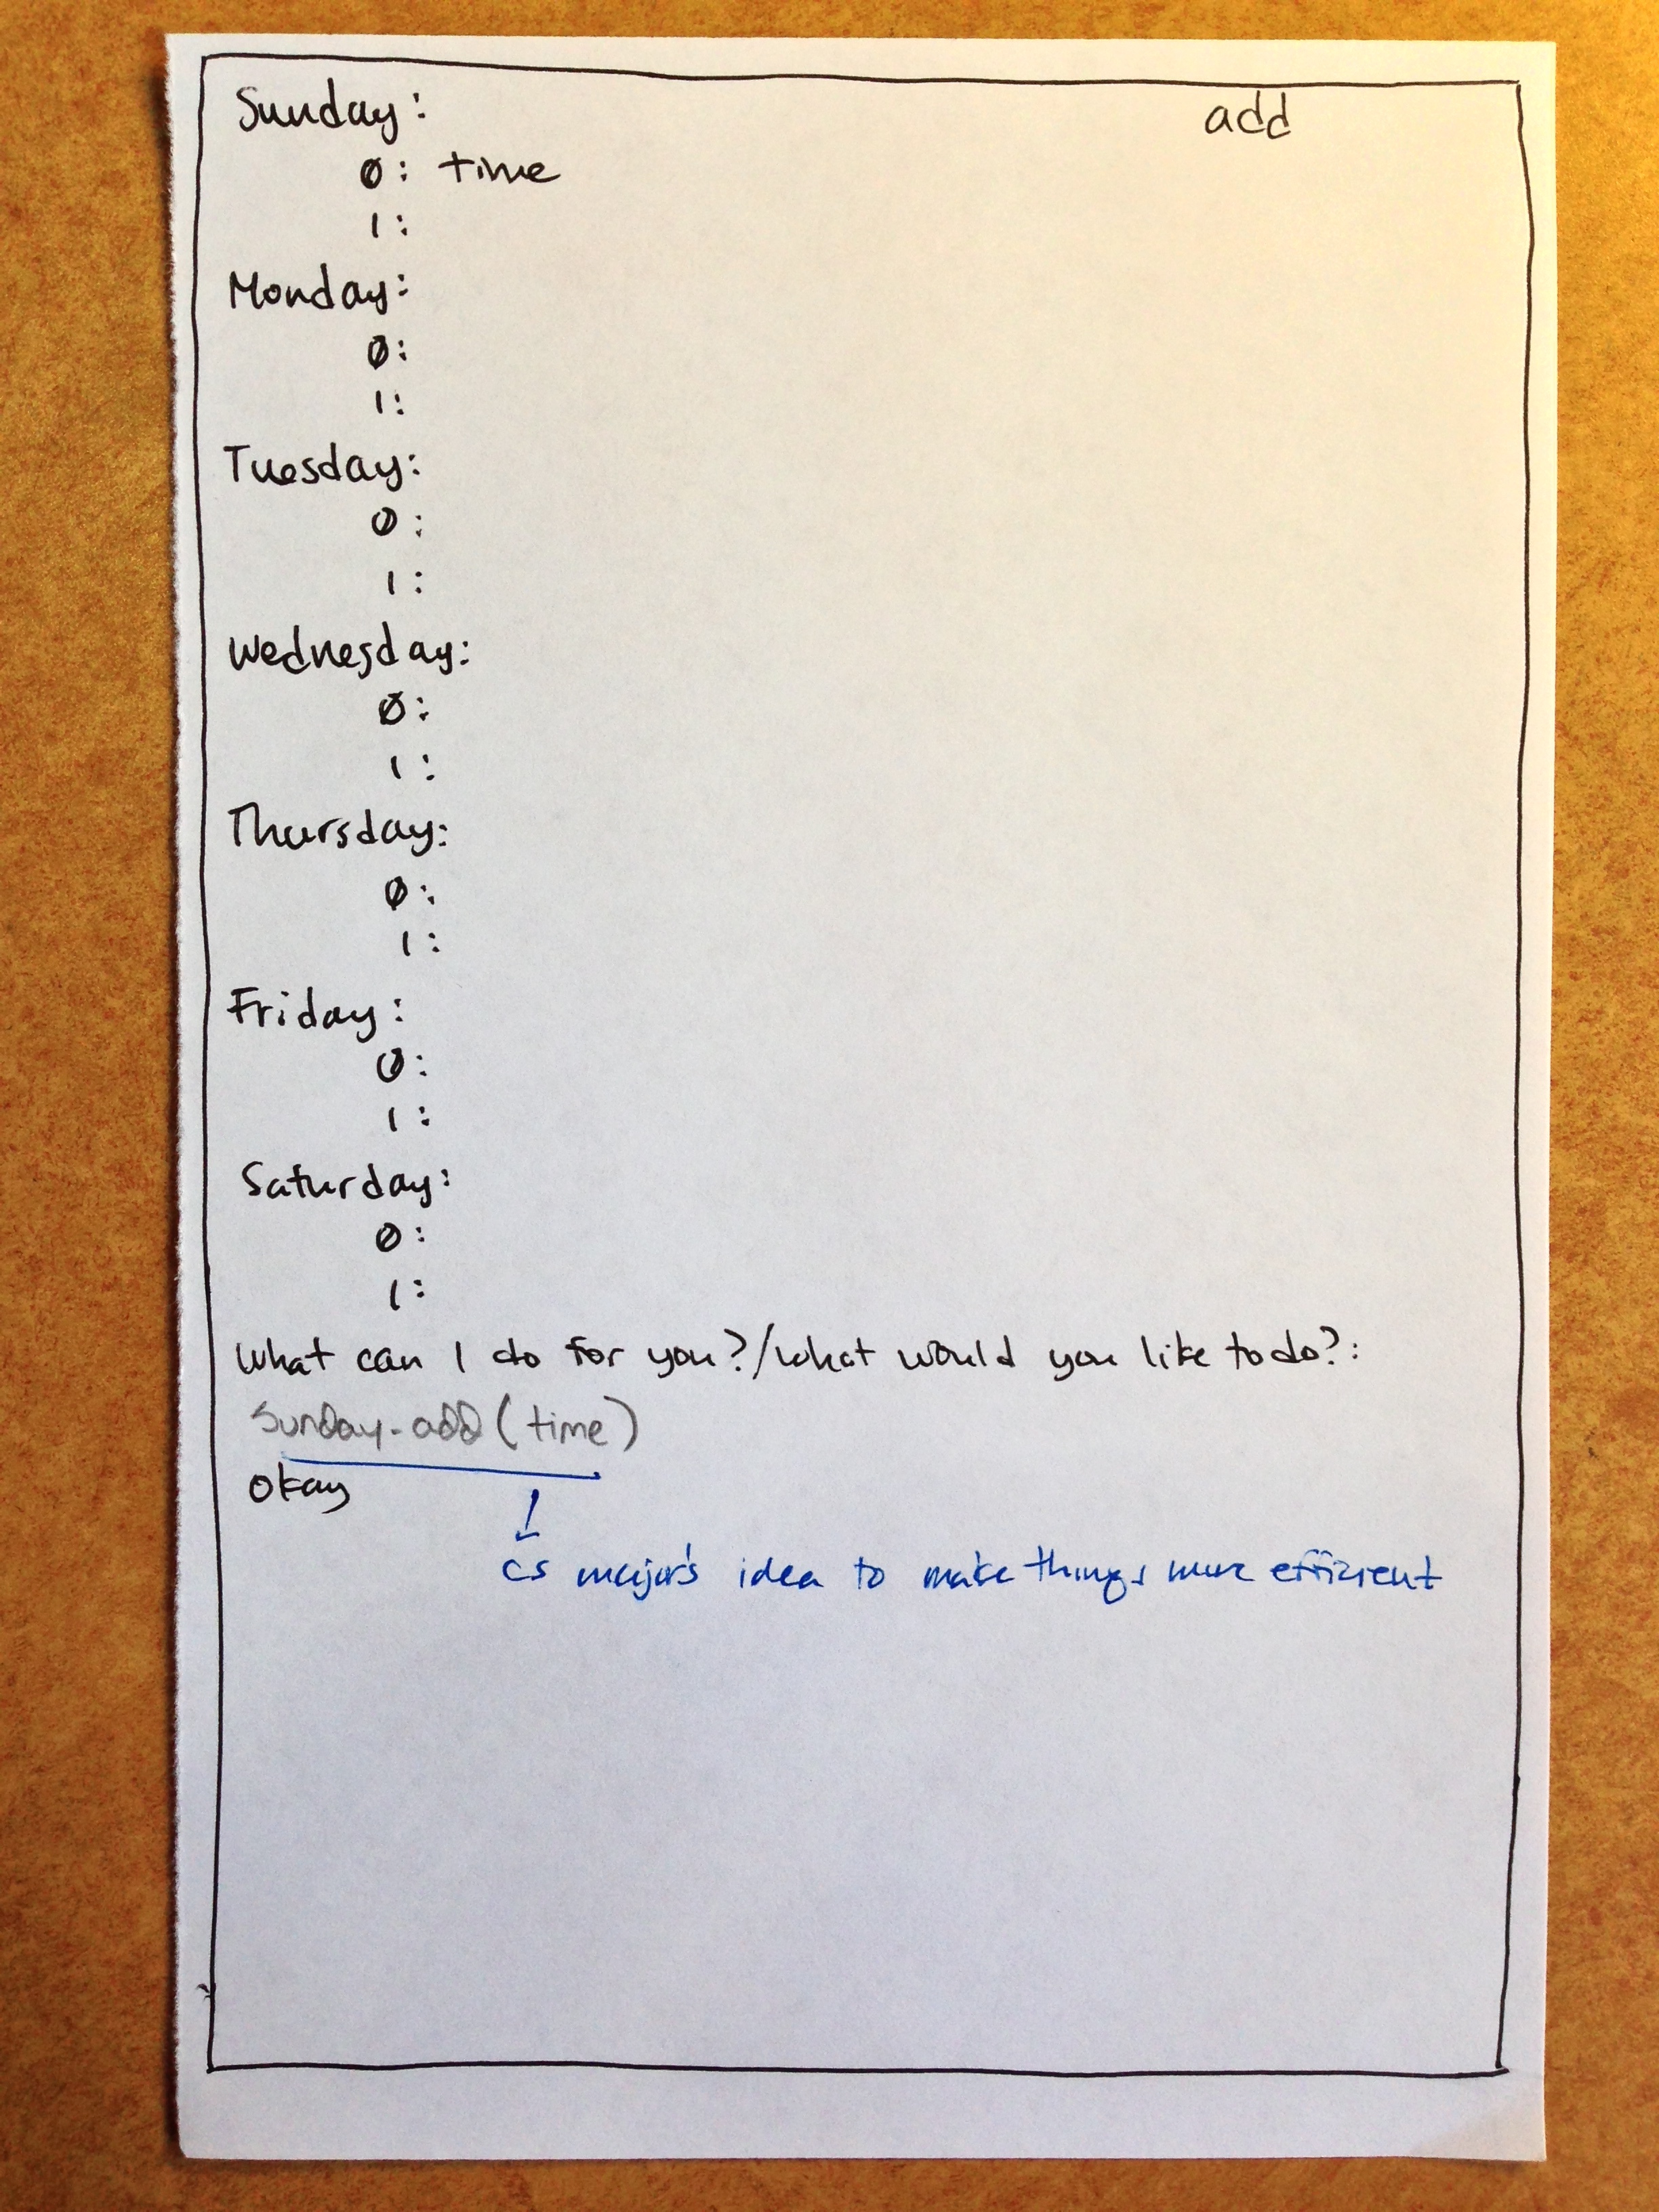 Sunday: add
0: time
1:
Monday:
0:
1:
Tuesday:
0:
1:
Wednesday:
0:
1:
Thursday:
0:
1:
Friday:
0:
1:
Saturday:
0:
1:
What can I do for you?/What would you like to do?:
Sunday.add(time)
Okay
CS major's idea to make things more efficient